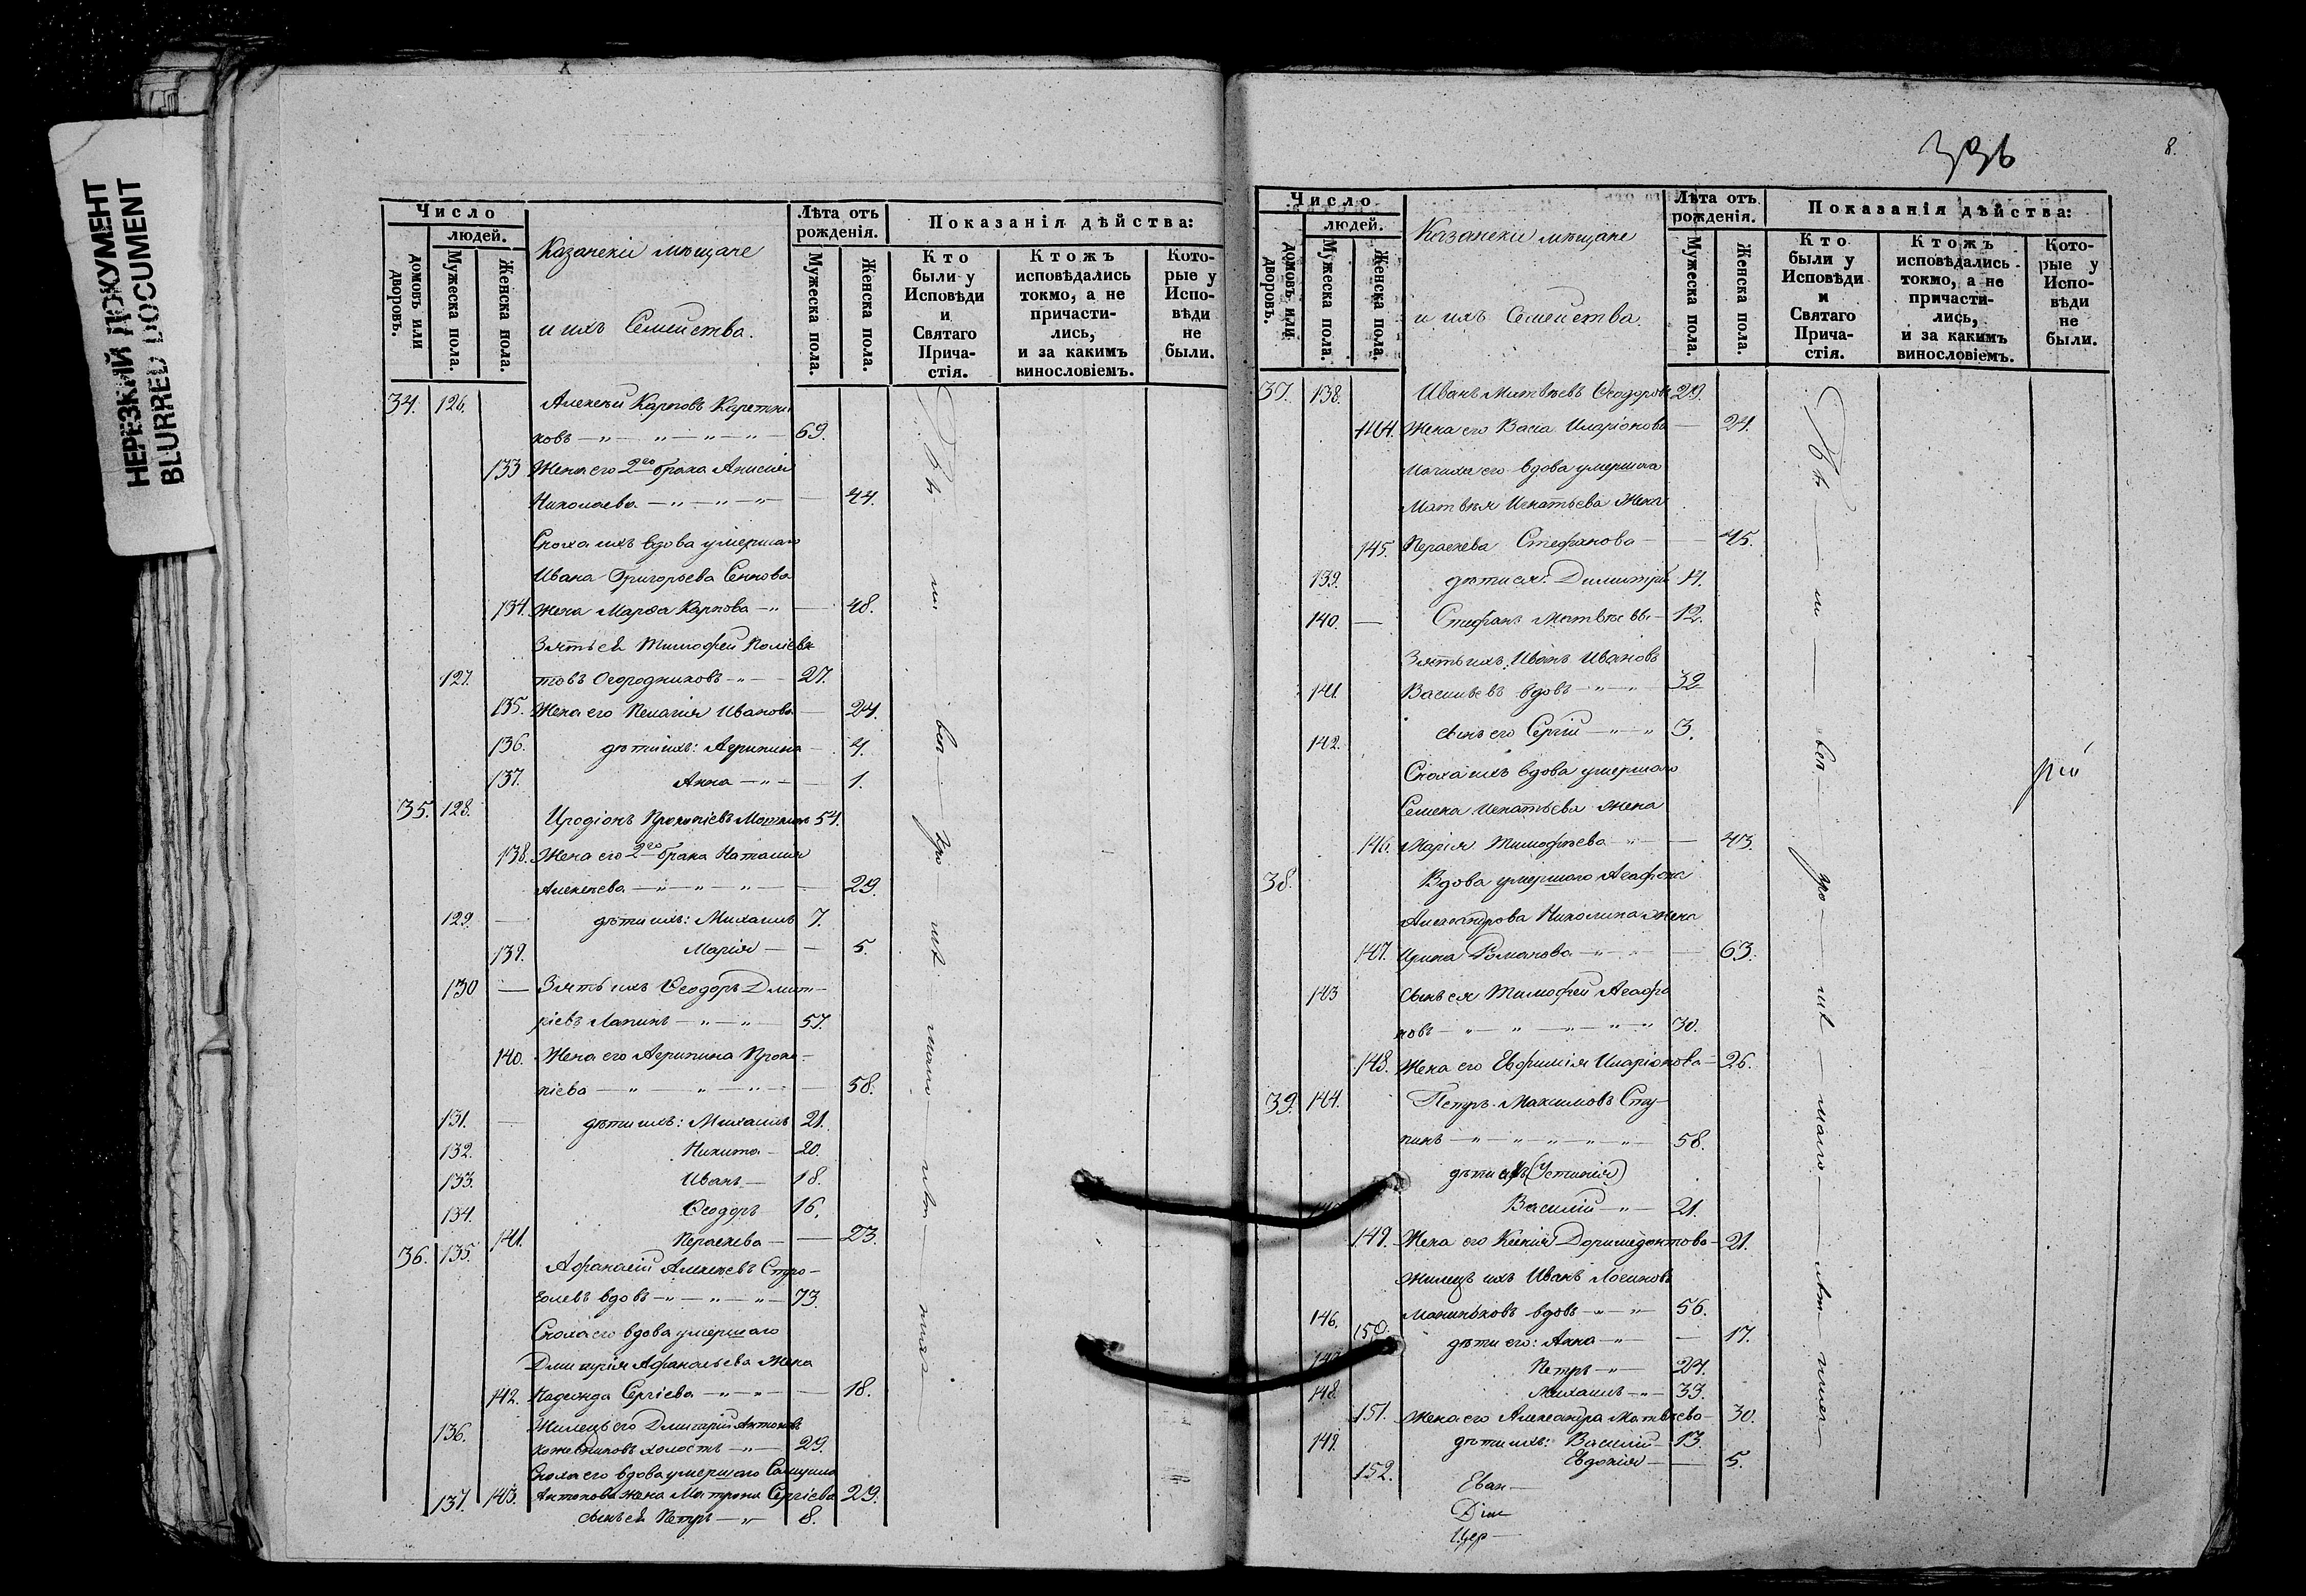 НЕРЕЗКИЙ ДОКУМЕНТ
BLURRED DOCUMENT
Число
людей.
домовъ или дворовъ.
Мужеска пола.
Женска пола.
Казанскіи мѣщане
и ихъ Семейства.
Лѣта отъ рожденія.
Мужеска пола.
Женска пола.
Показанія дѣйства:
Кто были у Исповѣди и Святаго Прича-стія.
Ктожъ исповѣдались токмо, а не причасти-лись, и за какимъ винословіемъ.
Кото-рые у Испо-вѣди не были.
34. 126. Алексѣй Карповъ Каретни
ковъ — " — " — " — " — 69.
133 Жена его 2го брака Анисія
Николаева — " — " — " — 44.
Сноха ихъ вдова умершаго
Ивана Григорьева
134. жена Марѳа Карпова — " — 48.
Зять ей Тимофей
127. товъ Огородниковъ — " — 27.
135. Жена его Пелагія Иванова — 24.
136. дѣти ихъ: Агрипина — 4.
137. Анна — " — 1.
35. 128. Иродіонъ Прокопіевъ 54.
138. Жена его 2го брака Наталія
Алексѣева — " — " — " — 29.
129. — дѣти ихъ: Михаилъ 7.
139. Марія — 5.
130 — Зять ихъ Ѳеодоръ Дмит-
ріевъ Лапинъ — " — " — 57.
140. Жена его Агрипина Проко-
піева — " — " — " — 58.
131. — дѣти ихъ: Михаилъ 21.
132. Никита — 20.
133. Иванъ — 18.
134. Ѳеодоръ 16.
141. Параскева — 23.
36. 135. Афанасій Алексѣевъ Стро-
голевъ вдовъ — " — " — " — 73.
Сноха его вдова умершаго
Димитрія Афанасьева жена
142. Надежда Сергіева — " — " — 18.
136. Жилецъ его Димитрій Антоновъ
Кожевниковъ холостъ — " — 29.
Сноха его вдова умершаго
137. 143. Антонова жена Матрона Сергіева 29.
сынъ ей Петръ — " 8.
336
8.
Число
людей.
домовъ или дворовъ.
Мужеска пола.
Женска пола.
Казанскіи мѣщане
и ихъ Семейства.
Лѣта отъ рожденія.
Мужеска пола.
Женска пола.
Показанія дѣйства:
Кто были у Исповѣди и Святаго Прича-стія.
Ктожъ исповѣдались токмо, а не причасти-лись, и за какимъ винословіемъ.
Кото-рые у Испо-вѣди не были.
37. 138. Иванъ Матвѣевъ Ѳеодоровъ 29.
144. Жена его Васса Иларіонова — 24.
Мачиха его вдова умершаго
Матвѣя Игнатьева жена
145. Параскева Стефанова — 45.
139. дѣти ея: Димитрій 14.
140. — Стефанъ Матвѣевы — 12.
Зять ихъ Иванъ Ивановъ
141. Васильевъ вдовъ — " — " — 32
142. сынъ его Сергій — " — " 3.
Сноха ихъ вдова умершаго
Семена Игнатьева жена
146. Марія Тимофѣева — " — 43.
38. Вдова умершаго Агафона
Александрова Николина жена
147. Ирина Романова — " — 63.
143 сынъ ея Тимофей Агафо
новъ — " — " — " — " — " 30.
148. Жена его Евфимія Иларіонова — 26.
39. 144. Петръ Максимовъ Сту-
пинъ — " — " — " — " — " — 58.
дѣти (Устинія)
Василій — " — 21.
149. Жена его Ксенія Доримедонтова — 21.
Жилецъ ихъ Иванъ Логиновъ
146. вдовъ — " — " 56.
150. дѣти его: Анна — " — 17.
Петръ — " — 24.
148. Михаилъ — " — 33.
151. Жена его Александра Матвѣева — 30.
149. дѣти ихъ: Василій — 13.
152. Евдокія — 5.
Еван —
Діак
Цер —